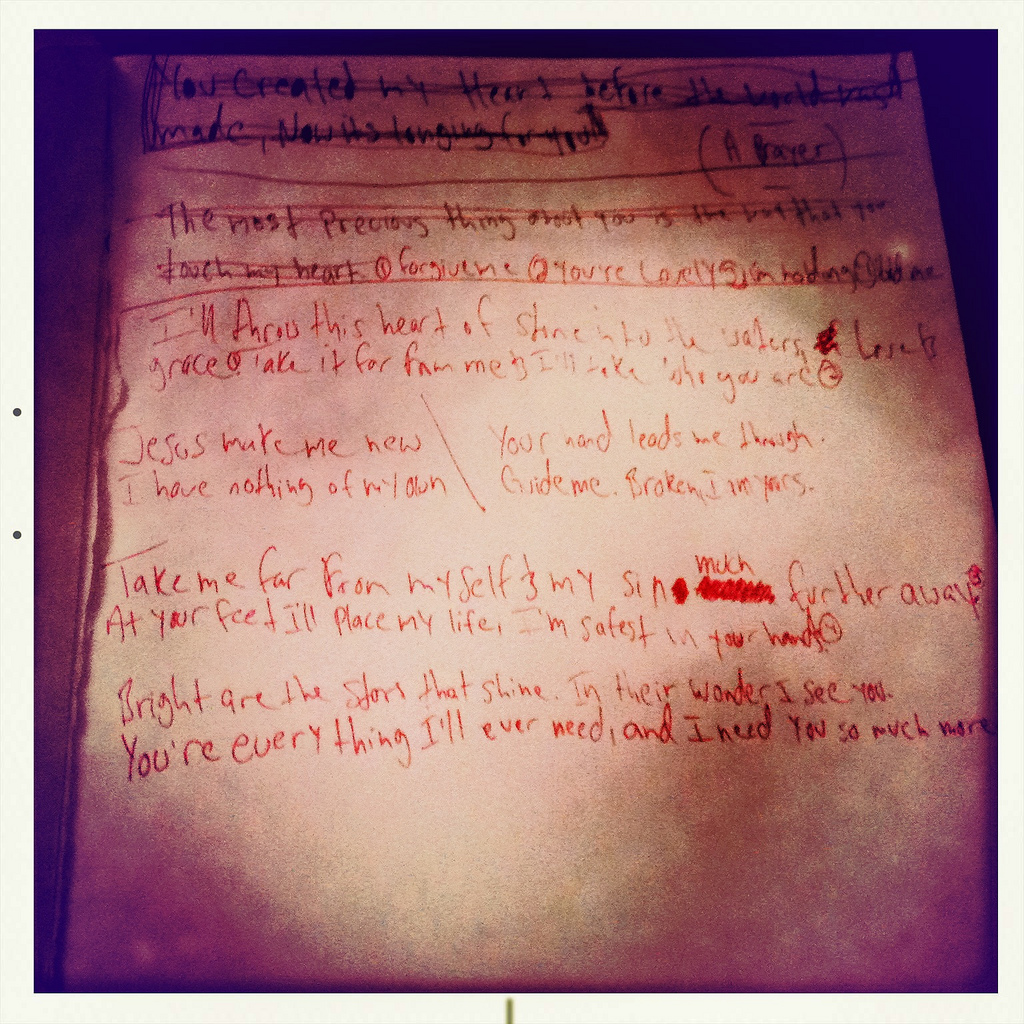 You Created my Heart before the world was
made, Now its longing for you
(A Prayer)
The most Precious thing about you is the that you
touch my heart ① forgive me ② You're Lovely ③ I'm holding me
I'll throw this heart of stone into the waters, Love &
grace ① Take it far from me & I'll take who you are ②
Jesus make me new \ Your hand leads me through.
I have nothing of my own \ Guide me. Broken, I'm yours.
Take me far From myself & my sin much further away ③
At your feet I'll Place my life, I'm safest in your hands ④
Bright are the stars that shine. In their wonder, I see you.
You're everything I'll ever need, and I need You so much more